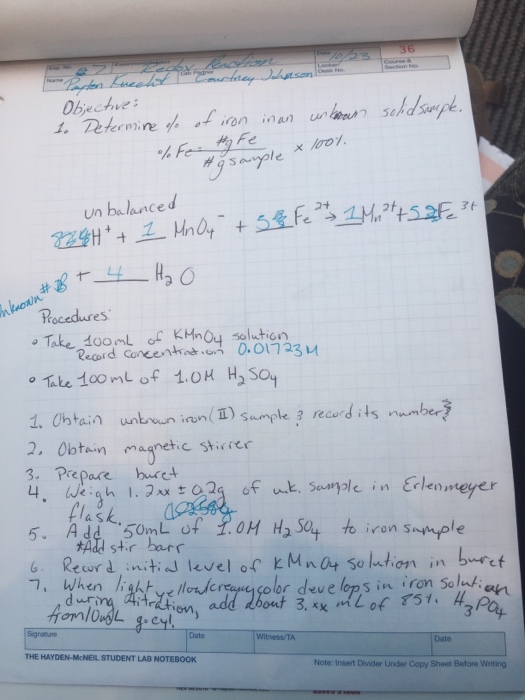 36
#7 Redox Reaction 10/23
Payton Knecht Courtney Johnson
Objective:
1. Determine % of iron in an unknown solid sample.
% Fe = #g Fe / #g sample x 100%
unbalanced
8 H⁺ + 1 MnO4⁻ + 5 Fe²⁺ → 1 Mn²⁺ + 5 Fe³⁺
+ 4 H2O
Unknown #
Procedures:
• Take 100mL of KMnO4 solution
Record concentration 0.01723M
• Take 100mL of 1.0M H2SO4
1. Obtain unknown iron (II) sample & record its number
2. Obtain magnetic stirrer
3. Prepare buret
4. Weigh 1.2xx ± 0.2g of unk. sample in Erlenmeyer
flask.
5. Add 50mL of 1.0M H2SO4 to iron sample
*Add stir barr
6. Record initial level of KMnO4 solution in buret
7. When light yellow/creamy color develops in iron solution
during titration, add about 3.xx mL of 85% H3PO4
from 10mL g. cyl.
Signature Date Witness/TA Date
THE HAYDEN-McNEIL STUDENT LAB NOTEBOOK
Note: Insert Divider Under Copy Sheet Before Writing